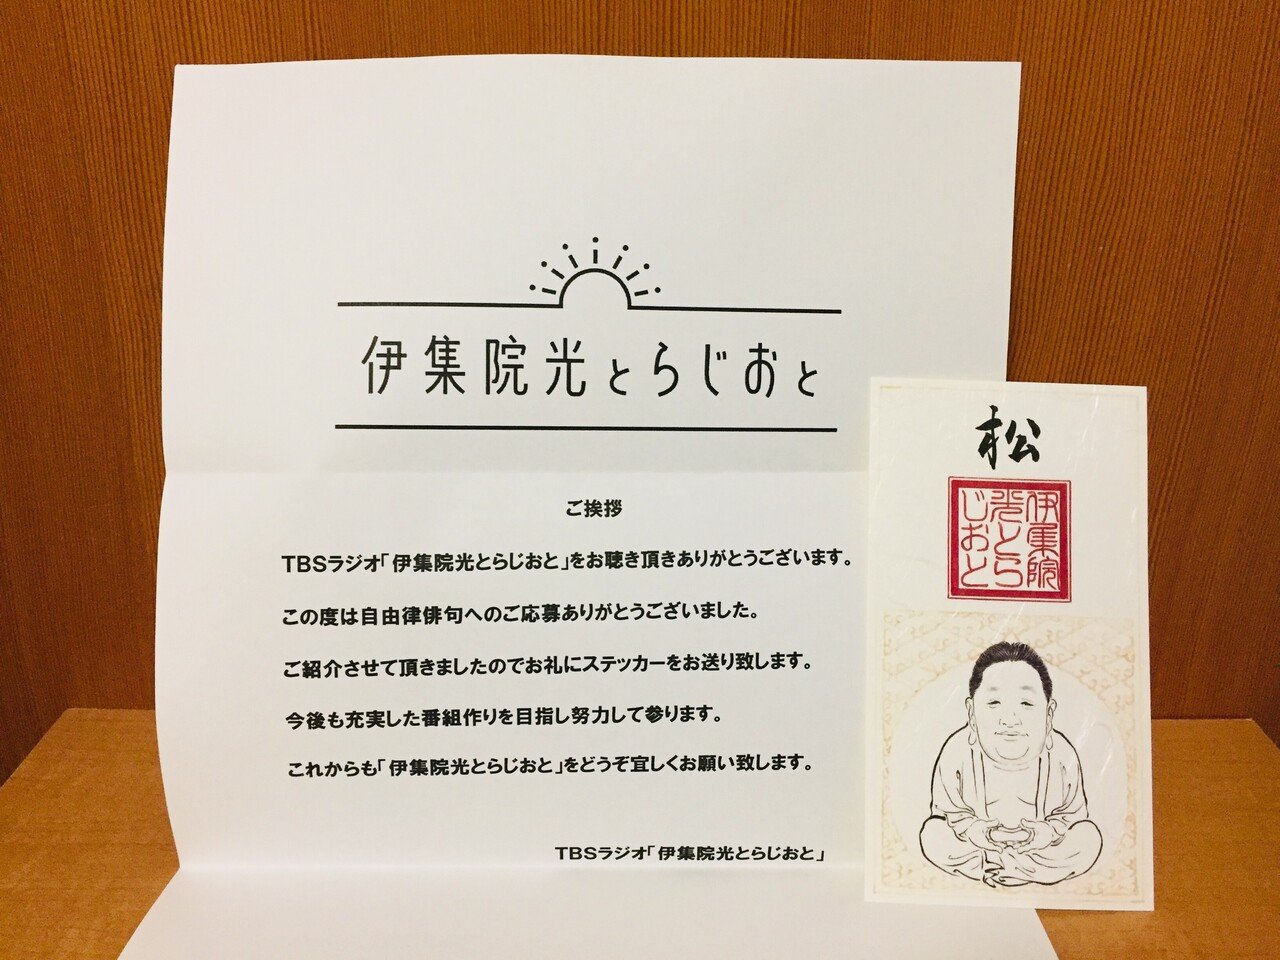 伊集院光とらじおと
ご挨拶
TBSラジオ「伊集院光とらじおと」をお聴き頂きありがとうございます。
この度は自由律俳句へのご応募ありがとうございました。
ご紹介させて頂きましたのでお礼にステッカーをお送り致します。
今後も充実した番組作りを目指し努力して参ります。
これからも「伊集院光とらじおと」をどうぞ宜しくお願い致します。
TBSラジオ「伊集院光とらじおと」
松
伊集院
光とら
じおと